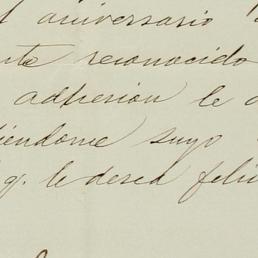 l aniversario
nte reconocido
adhesion le
iéndome suyo
q. le desea feli